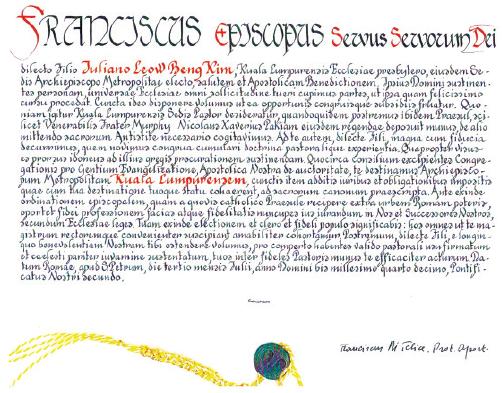 FRANCISCUS EPISCOPUS Servus Servorum Dei
dilecto Filio Juliano Leow Beng Kim, Kuala Lumpurensis Ecclesiae presbytero, eiusdem Se-
dis Archiepiscopo Metropolitae electo, salutem et Apostolicam Benedictionem. Ipsius Domini sustinen-
tes personam, universae Ecclesiae omni sollicitudine tueri cupimus partes, ut ipsa quam felicissimo
cursu procedat. Cuncta ideo disponere volumus ut ea opportunis congruisque subsidiis fruatur. Quo-
niam igitur Kuala Lumpurensis Sedis Pastor desideratur, quandoquidem postremus ibidem Praesul, sci-
licet Venerabilis Frater Murphy Nicolaus Xaverius Pakiam eiusdem regendae deposuit munus, de alio
mittendo sacrorum Antistite necessario cogitavimus. Ad te autem, dilecte Fili, magna cum fiducia
decurrimus, quem novimus congrua cumulari doctrina pastoralique experientia. Quapropter visus
es prorsus idoneus ad illius gregis procurationem sustinendam. Quocirca consilium excipientes Congre-
gationis pro Gentium Evangelizatione, Apostolica Nostra de auctoritate, te destinamus Archiepisco-
pum Metropolitam Kuala Lumpurensem, cunctis item additis iuribus et obligationibus impositis
quae cum tua destinatione tuoque statu cohaerent, ad sacrorum canonum praescripta. Ante
ordinationem episcopalem, quam a quovis catholico Praesule recipere extra urbem Romam poteris,
oportet fidei professionem facias atque fidelitatis nuncupes ius iurandum in Nos et Successores Nostros,
secundum Ecclesiae leges. Tuam exinde electionem et clero et fideli populo significabis: hos omnes ut te ma-
gistrum rectoremque convenienter suscipiant amabiliter cohortamur. Postremum, dilecte Fili,
quo benevolentiam Nostram tibi ostendere volumus, pro comperto habentes valido pastorali usu firmatum
et caelesti pariter iuvamine sustentatum, tuos inter fideles Pastoris munus te efficaciter acturum. Da-
tum Romae, apud S. Petrum, die tertio mensis Julii, anno Domini bis millesimo quarto decimo, Pontifi-
catus Nostri secundo.
Franciscus
Prot. Apost.